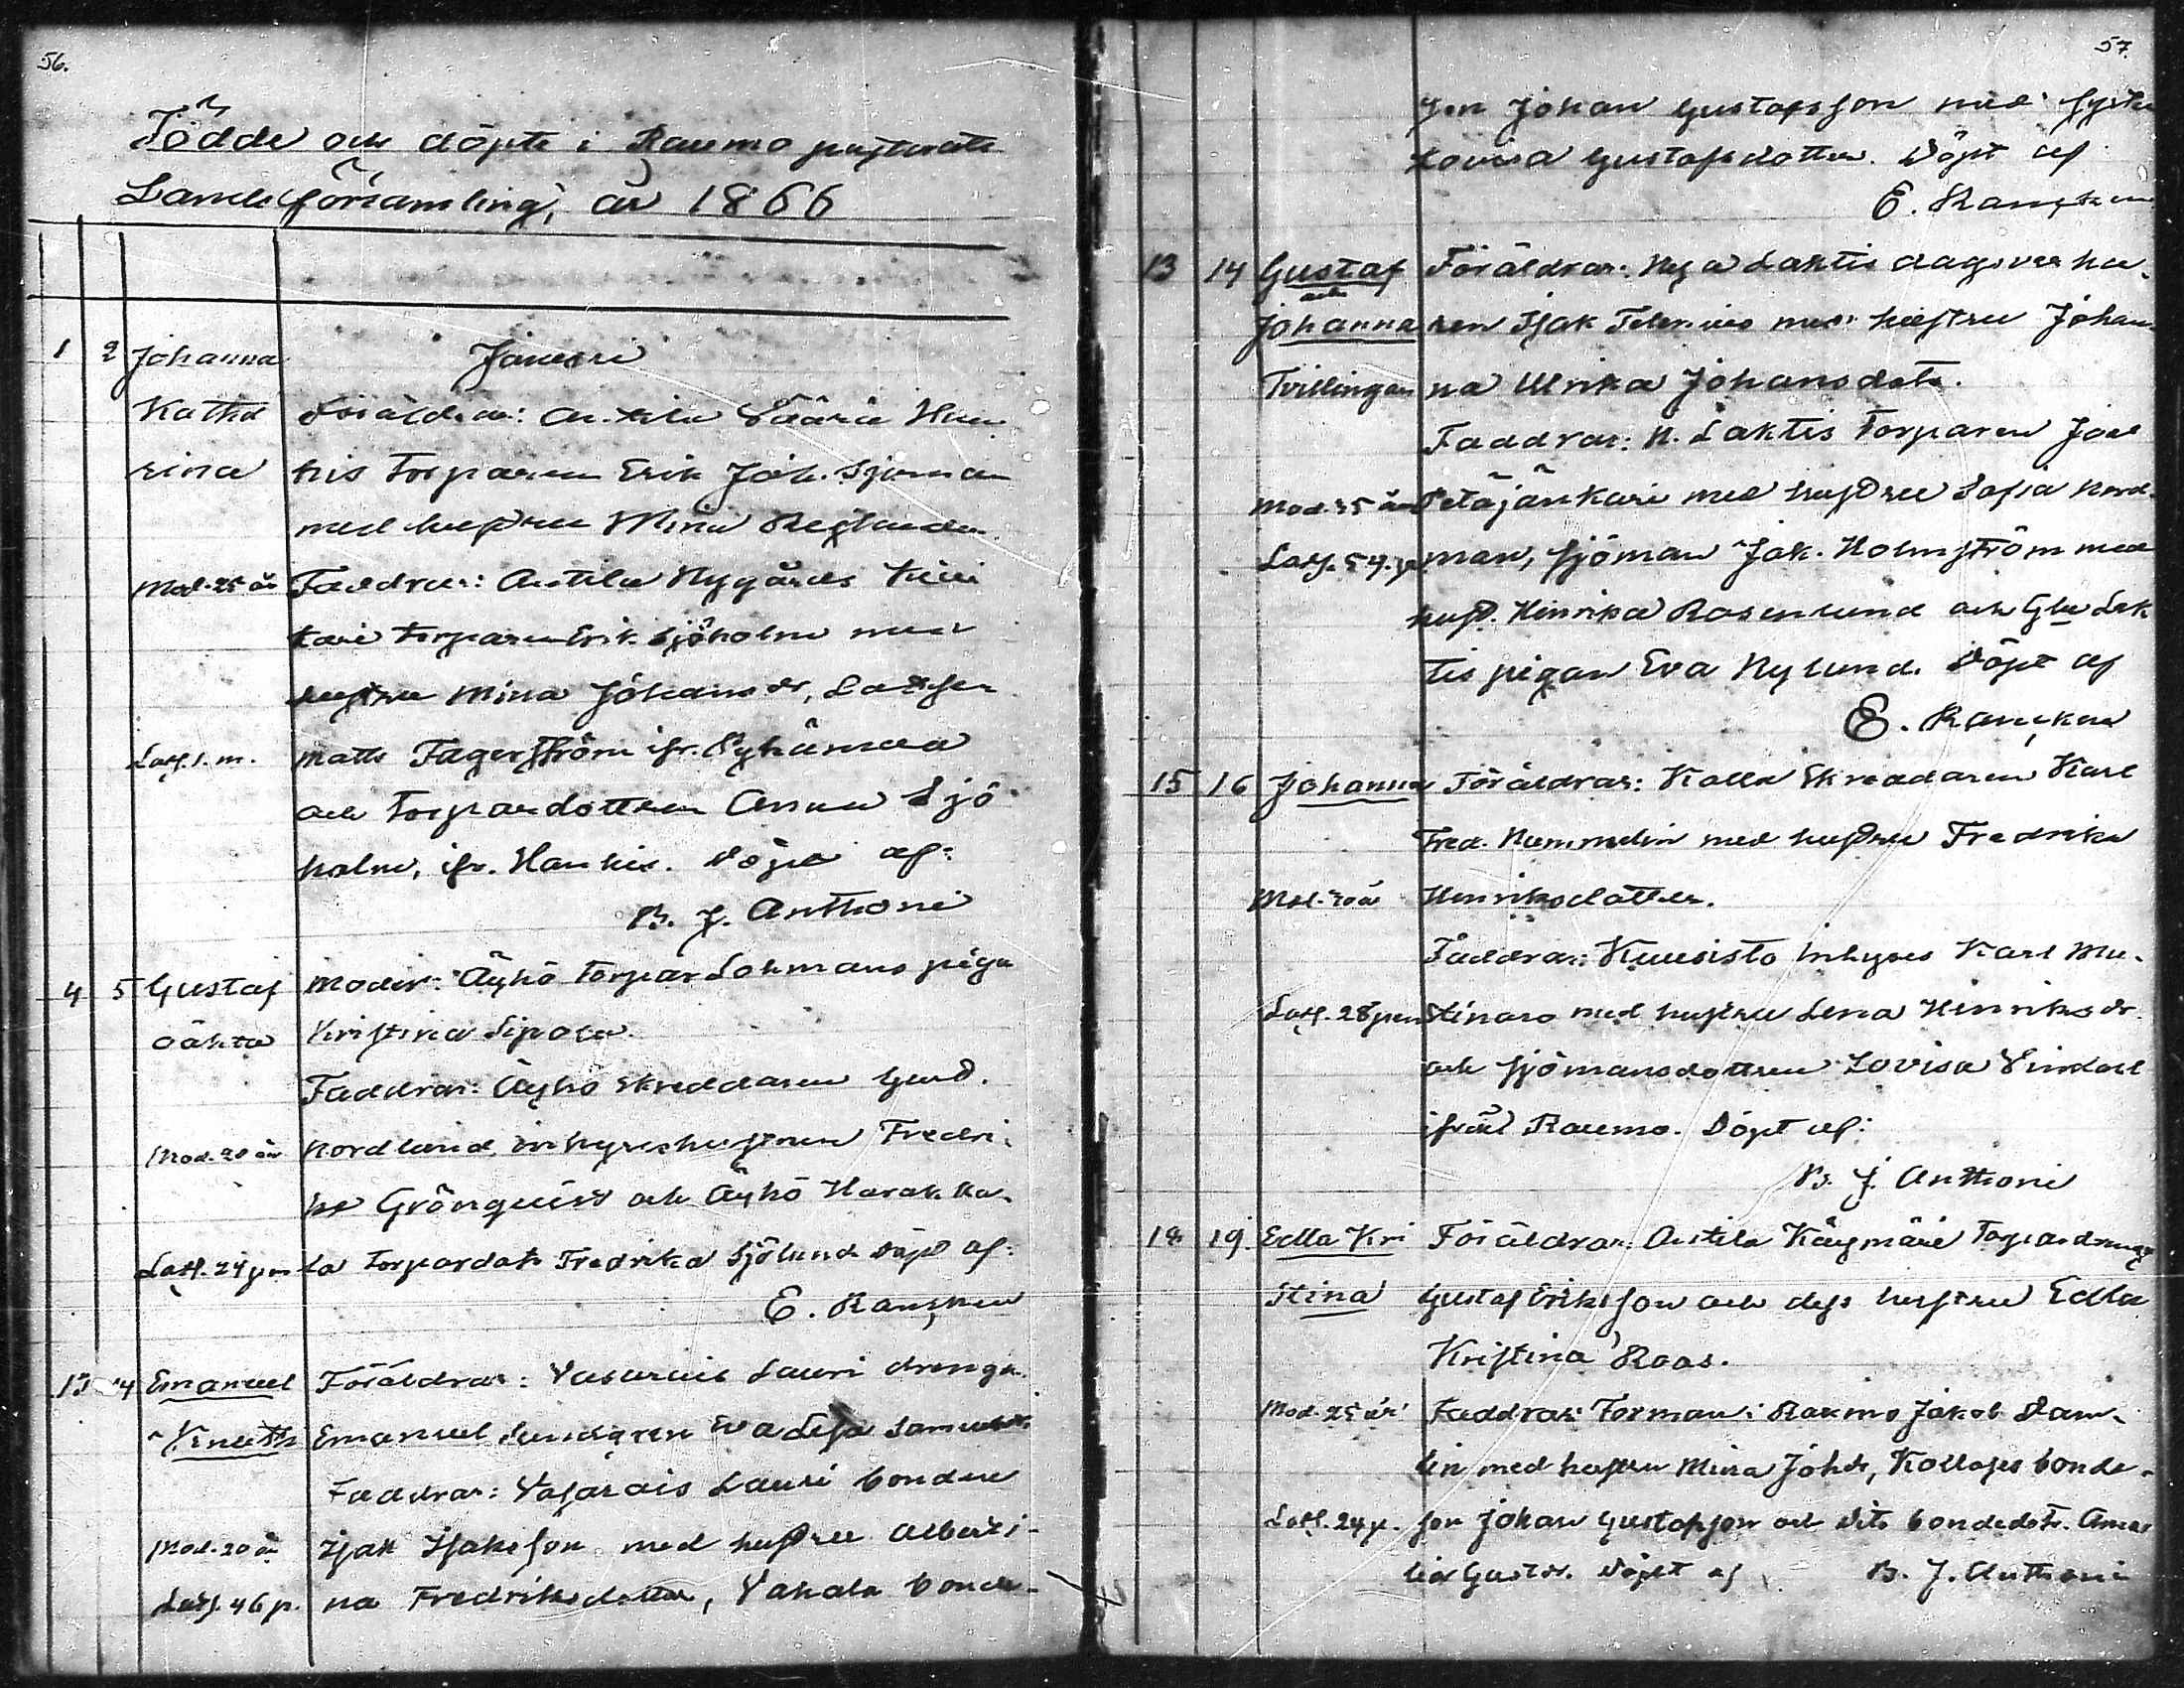 56.
Födde och döpte i Raumo pastorats
Landsförsamling, år 1866
Januari
1 2 Johanna
Katha Föräldrar: Antila Hin
rina his Torparen Erik Joh. Sjöman
med hustru Mina
Mod. 25 år Faddrar: Antila Nygårds
kari torparen Erik Sjöholm med
hustru Mina Johansdr,
Lösf. 1. m. Matts Fagerström ifr. Pyhämaa
och Torpardottren Anna Sjö
holm, ifr. Hankis. Döpt af:
B. J. Anthoni
4 5 Gustaf Moder: Äyhö Torpar Lohmans piga
oäkta Kristina Sipola.
Faddrar: Äyhö skreddaren Gust.
Mod. 20 år Nordlund, inhyseshustrun Fredri-
ka Grönqvist och Äyhö Harakka-
Lösf. 24 pen la torpardotr Fredrika Sjölund Döpt af:
E. Rancken
13 14 Emanuel Föräldrar: Vasarais Lauri drengen
Knuth Emanuel Lundgren Eva Lisa
Faddrar: Vasarais Lauri bonden
Mod. 20 år Isak Isaksson med hustru Alberti-
Lösf. 46 p. na Fredriksdotter, Vahala bonde-
57.
son Johan Gustafsson med syster
Lovisa Gustafsdotter. Döpt af
E. Rancken
13 14 Gustaf Föräldrar: Nya Laktis dagsverka-
och
Johanna ren Isak med hustru Johan
Tvillingar na Ulrika Johansdotr.
Faddrar: N. Laktis Torparen Joel
Mod. 35 år Petäjänkari med hustru Sofia Nord-
Lösf. 54. p. man, sjöman Jak. Holmström med
hust. Henrika Rosenlund och Gla Lak
tis pigan Eva Nylund. Döpt af
E. Rancken
15 16 Johanna Föräldrar: Kolla Skreddaren Karl
Fred. Nummelin med hustru Fredrika
Mod. 30 år Henriksdotter.
Faddrar: Kuusisto Inhyses Karl Mu-
Lösf. 28 pen stinaro med hustru Lena Henriksdr
och sjömansdottren Lovisa
ifrån Raumo. Döpt af:
B. J. Anthoni
18 19 Edla Kri Föräldrar: Antila Käymäri Torpardrengen
stina Gustaf Eriksson och dess hustru Edla
Kristina Roos.
Mod. 25 år Faddrar: Forman i Raumo Jakob Dam-
lin med hustru Mina Johdr, Kollas bonde-
Lösf. 24 p. son Johan Gustafsson och dito bondedotr. Ama
lia Gustdr. Döpt af B. J. Anthoni